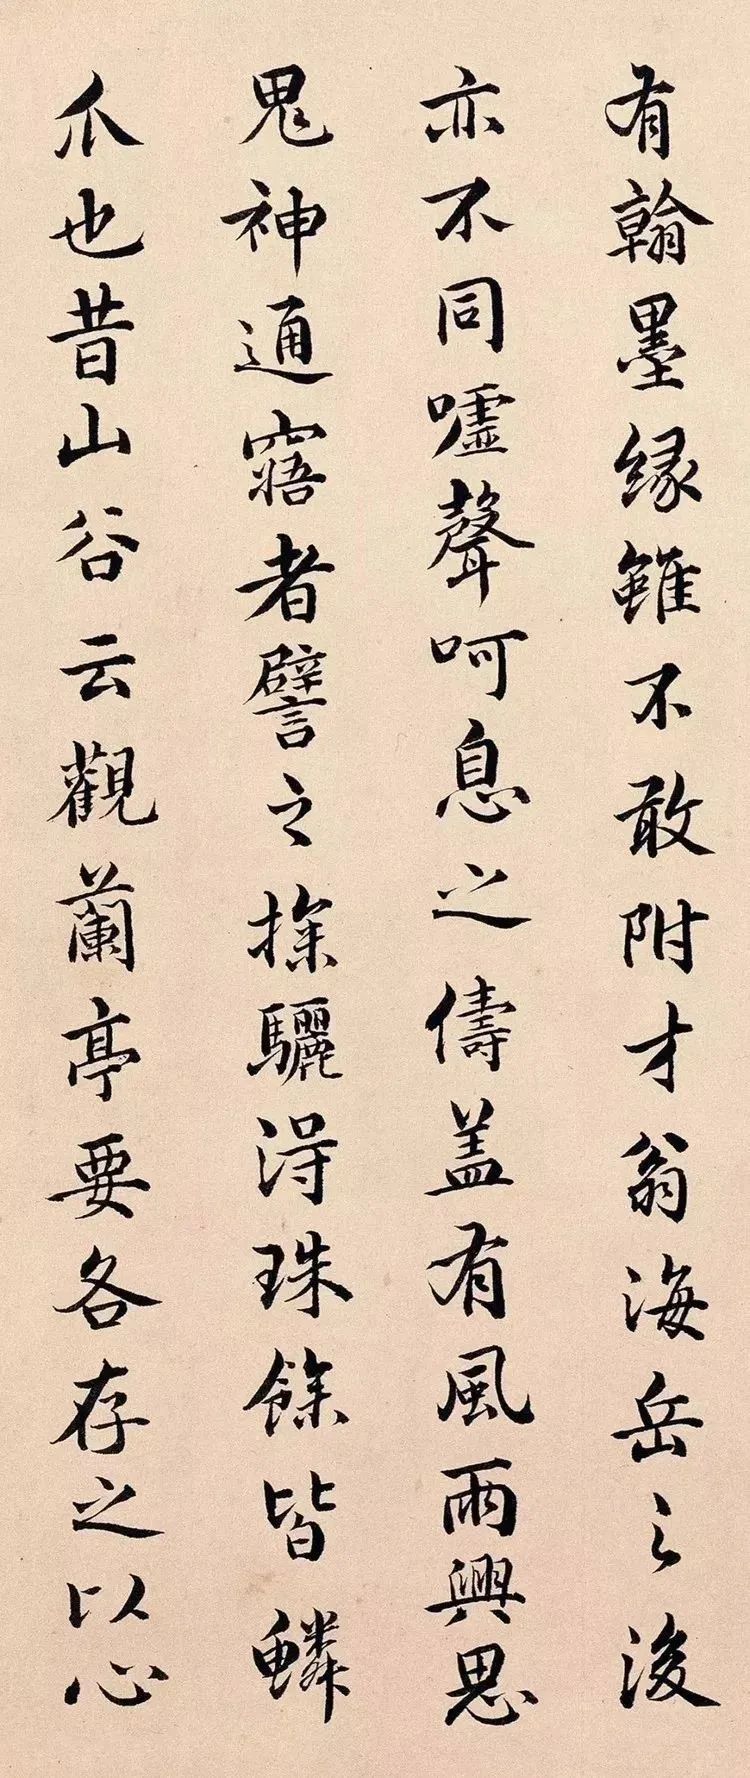 有翰墨緣雖不敢附才翁海岳之後
亦不同嘘聲呵息之儔盖有風雨興思
鬼神通寤者譬之探驪得珠餘皆鱗
爪也昔山谷云觀蘭亭要各存之以心